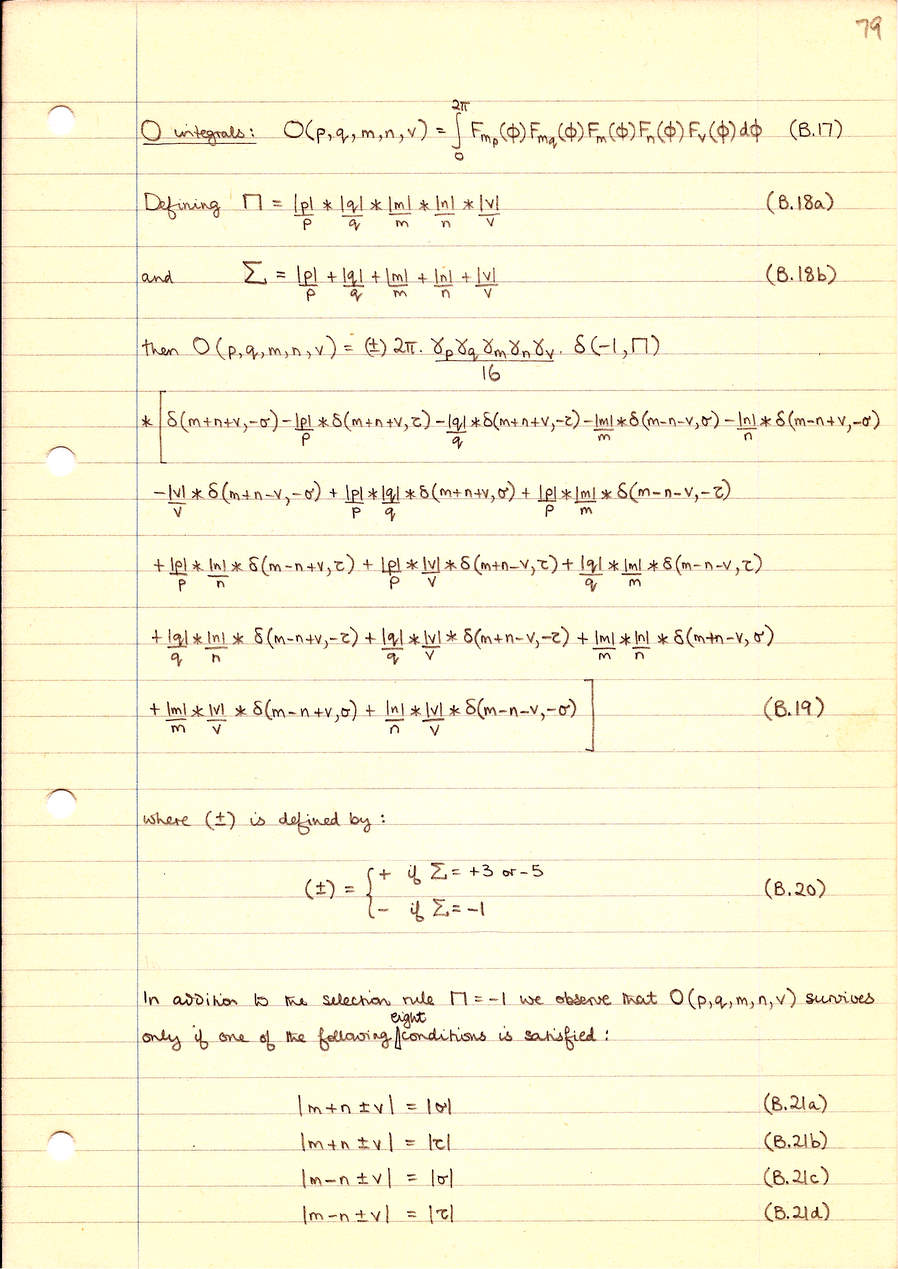 79
O integrals: O(p,q,m,n,v) = ∫₀^2π F_mp(ϕ) F_mq(ϕ) F_m(ϕ) F_n(ϕ) F_v(ϕ) dϕ (B.17)
Defining Π = |p|/p * |q|/q * |m|/m * |n|/n * |v|/v (B.18a)
and Σ = |p|/p + |q|/q + |m|/m + |n|/n + |v|/v (B.18b)
then O(p,q,m,n,v) = (±) 2π. γ_p γ_q γ_m γ_n γ_v/16 . δ(-1,Π)
* [ δ(m+n+v,-σ) - |p|/p * δ(m+n+v,τ) - |q|/q * δ(m+n+v,-τ) - |m|/m * δ(m-n-v,σ) - |n|/n * δ(m-n+v,-σ)
- |v|/v * δ(m+n-v,-σ) + |p|/p * |q|/q * δ(m+n+v,σ) + |p|/p * |m|/m * δ(m-n-v,-τ)
+ |p|/p * |n|/n * δ(m-n+v,τ) + |p|/p * |v|/v * δ(m+n-v,τ) + |q|/q * |m|/m * δ(m-n-v,τ)
+ |q|/q * |n|/n * δ(m-n+v,-τ) + |q|/q * |v|/v * δ(m+n-v,-τ) + |m|/m * |n|/n * δ(m+n-v,σ)
+ |m|/m * |v|/v * δ(m-n+v,σ) + |n|/n * |v|/v * δ(m-n-v,-σ) ] (B.19)
where (±) is defined by :
(±) = { + if Σ = +3 or -5
- if Σ = -1 (B.20)
In addition to the selection rule Π = -1 we observe that O(p,q,m,n,v) survives
only if one of the following eight conditions is satisfied :
|m+n±v| = |σ| (B.21a)
|m+n±v| = |τ| (B.21b)
|m-n±v| = |σ| (B.21c)
|m-n±v| = |τ| (B.21d)